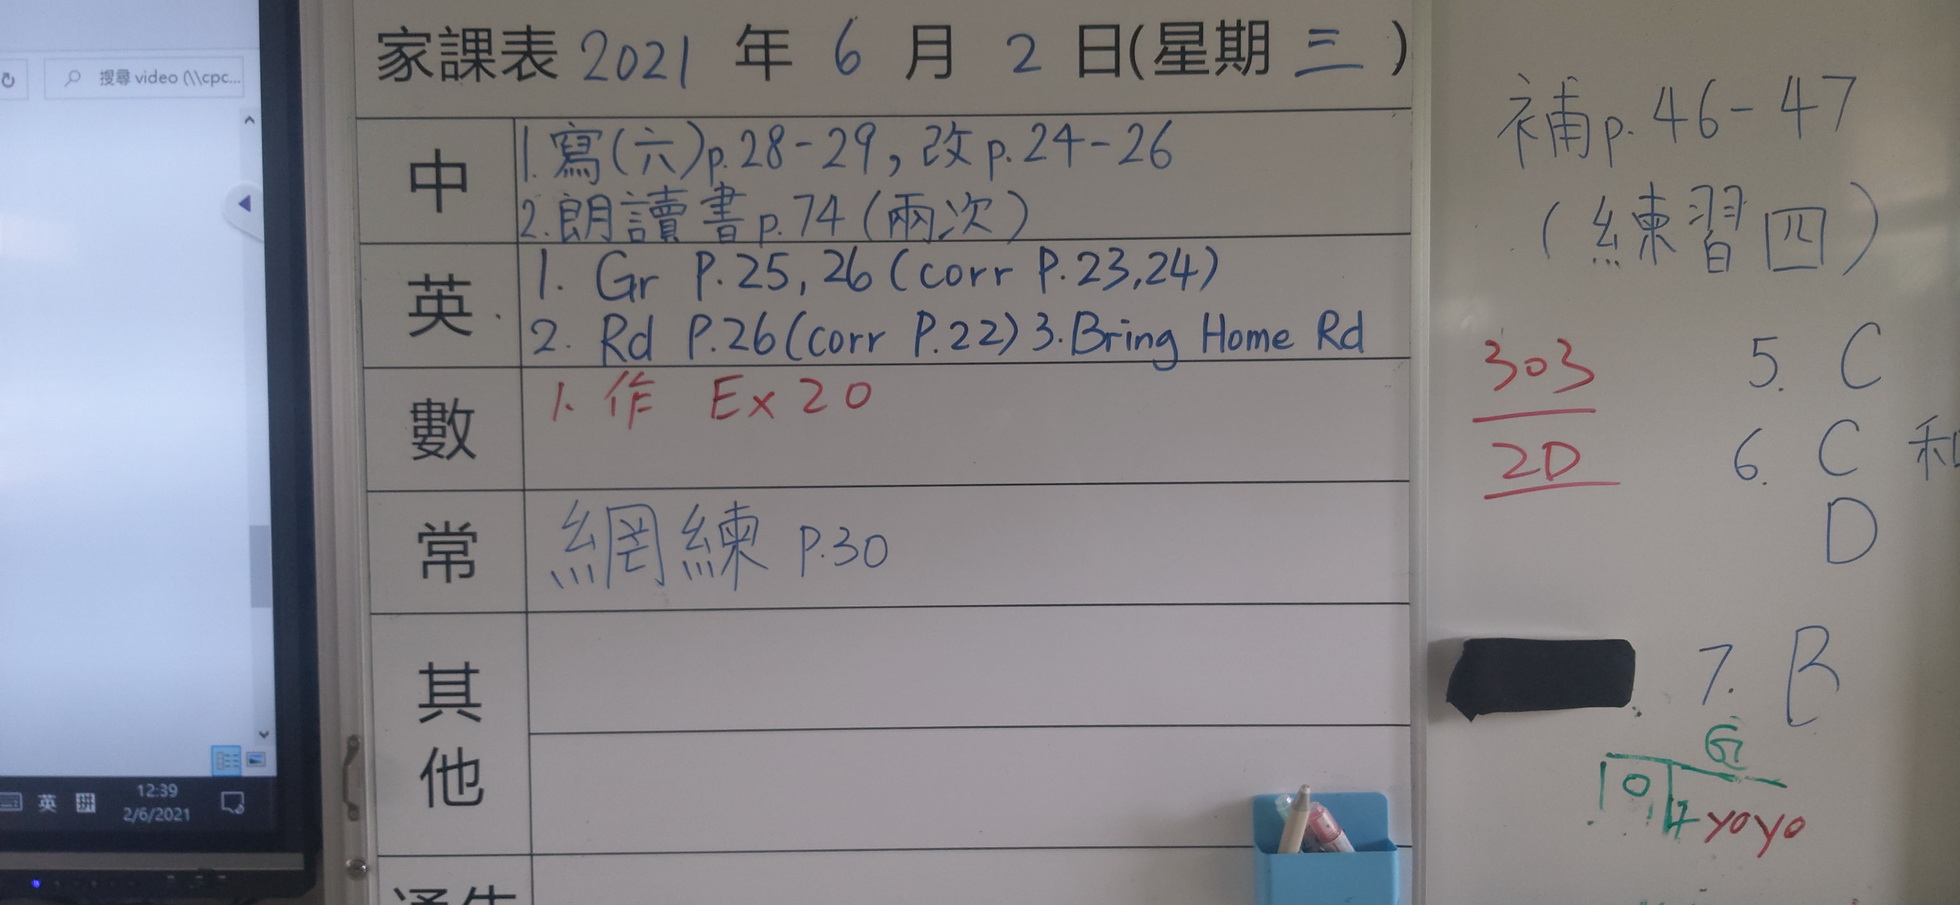 搜尋 video (\\cpc...
英
12:39
2/6/2021
家課表 2021 年 6 月 2 日(星期 三 )
中
1. 寫(六)p.28-29, 改p.24-26
2. 朗讀書p.74(兩次)
英
1. Gr P.25, 26 (corr P.23,24)
2. Rd P.26 (corr P.22) 3. Bring Home Rd
數
1. 作 Ex 20
常
網練 P.30
其他
補p.46-47
(練習四)
303
2D
5. C
6. C 和
D
7. B
yoyo